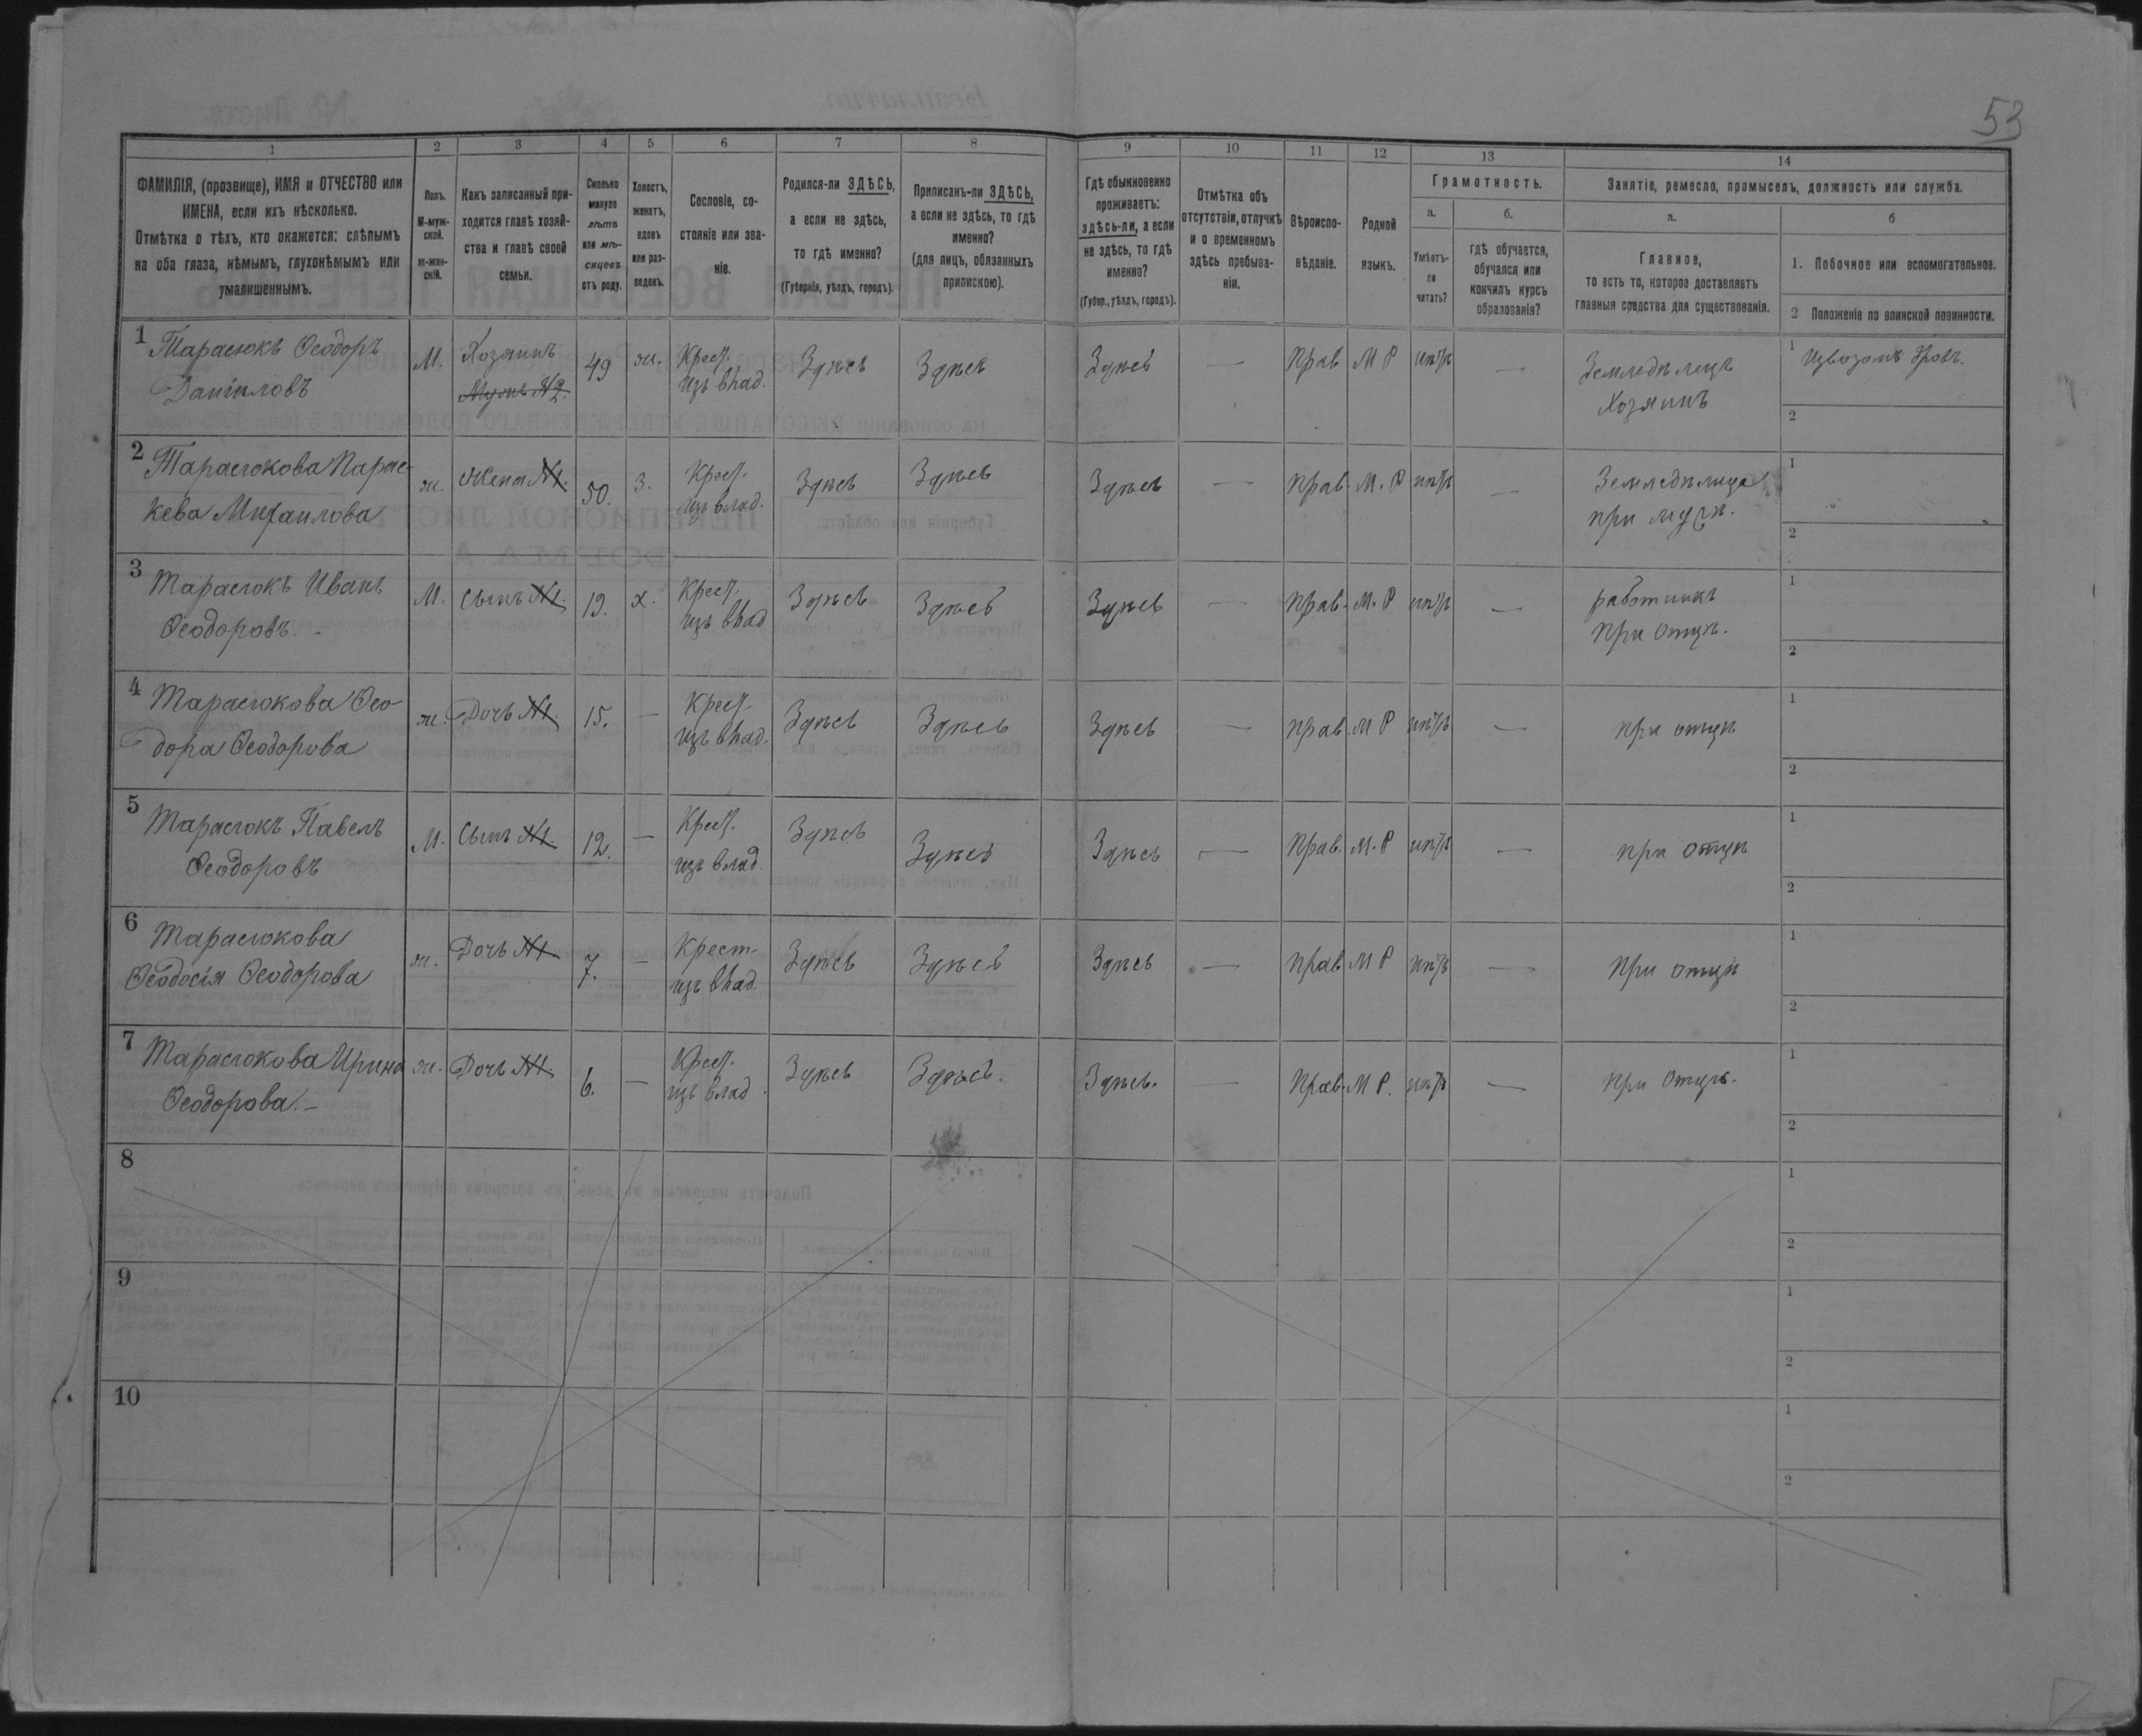 53
1 2 3 4 5 6 7 8 9 10 11 12 13 14
ФАМИЛІЯ, (прозвище), ИМЯ и ОТЧЕСТВО или
ИМЕНА, если ихъ нѣсколько.
Отмѣтка о тѣхъ, кто окажется: слѣпымъ
на оба глаза, нѣмымъ, глухонѣмымъ или
умалишеннымъ.
Полъ.
М-муж-
ской.
ж-жен-
скій.
Какъ записанный при-
ходится главѣ хозяй-
ства и главѣ своей
семьи.
Сколько
минуло
лѣтъ
или мѣ-
сяцевъ
отъ роду.
Холостъ,
женатъ,
вдовъ
или раз-
веденъ.
Сословіе, со-
стояніе или зва-
ніе.
Родился-ли ЗДѢСЬ,
а если не здѣсь,
то гдѣ именно?
(Губернія, уѣздъ, городъ).
Приписанъ-ли ЗДѢСЬ,
а если не здѣсь, то гдѣ
именно?
(для лицъ, обязанныхъ
припискою).
Гдѣ обыкновенно
проживаетъ:
здѣсь-ли, а если
не здѣсь, то гдѣ
именно?
(Губер., уѣздъ, городъ).
Отмѣтка объ
отсутствіи, отлучкѣ
и о временномъ
здѣсь пребыва-
ніи.
Вѣроиспо-
вѣданіе.
Родной
языкъ.
Грамотность.
а.
Умѣетъ-
ли
читать?
б.
гдѣ обучается,
обучался или
кончилъ курсъ
образованія?
Занятіе, ремесло, промыселъ, должность или служба.
а.
Главное,
то есть то, которое доставляетъ
главныя средства для существованія.
б
1. Побочное или вспомогательное.
2 Положеніе по воинской повинности.
1 Тарасюкъ Ѳеодоръ М. Хозяинъ 49 ж. Крест. Здѣсь Здѣсь Здѣсь — Прав М Р нѣтъ — Земледѣлецъ 1 Извозомъ дровъ.
Даниловъ Мужъ №2. изъ влад. Хозяинъ 2
2 Тарасюкова Парас- ж. Жена №1. 50. З. Крест. Здѣсь Здѣсь Здѣсь — Прав. М. Р нѣтъ — Земледѣлица 1
кева Михаилова изъ влад. при мужѣ. 2
3 Тарасюкъ Иванъ М. Сынъ №1. 19. Х. Крест. Здѣсь Здѣсь Здѣсь — Прав. М. Р нѣтъ — работникъ 1
Ѳеодоровъ. - изъ влад при отцѣ. 2
4 Тарасюкова Ѳео- ж. Дочь №1. 15. — Крест. Здѣсь Здѣсь Здѣсь — Прав. М Р нѣтъ — при отцѣ 1
дора Ѳеодорова изъ влад. 2
5 Тарасюкъ Павелъ М. Сынъ №1. 12. — Крест. Здѣсь Здѣсь Здѣсь — Прав. М. Р нѣтъ — при отцѣ 1
Ѳеодоровъ изъ влад. 2
6 Тарасюкова ж. Дочь №1 7. — Крест- Здѣсь Здѣсь Здѣсь — Прав М Р нѣтъ — При отцѣ 1
Ѳеодосія Ѳеодорова изъ влад. 2
7 Тарасюкова Ирина ж. Дочь №1. 6. — Крест. Здѣсь Здѣсь. Здѣсь. — Прав. М Р. нѣтъ — при отцѣ. 1
Ѳеодорова. - изъ влад. 2
8 1
2
9 1
2
10 1
2